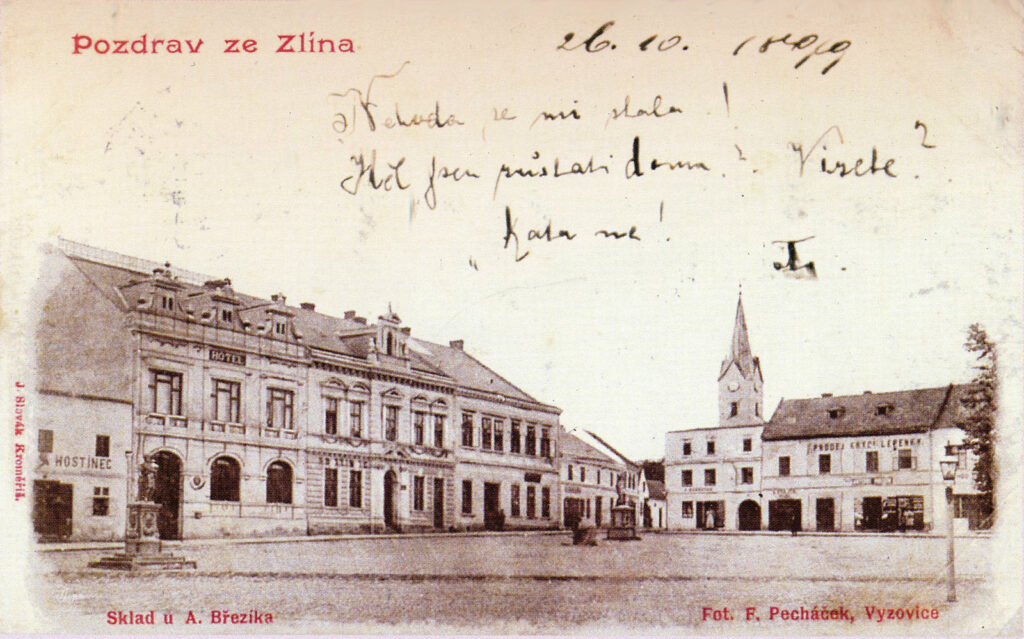 Pozdrav ze Zlína
26. 10. 1899
Nehoda se mi stala!
jsem zůstati doma? Vizete?
ne!
HOTEL
HOSTINEC
PRODEJ KRYCÍ LEPENKY
J. Slovák Kroměříž.
Sklad u A. Březíka
Fot. F. Pecháček, Vyzovice